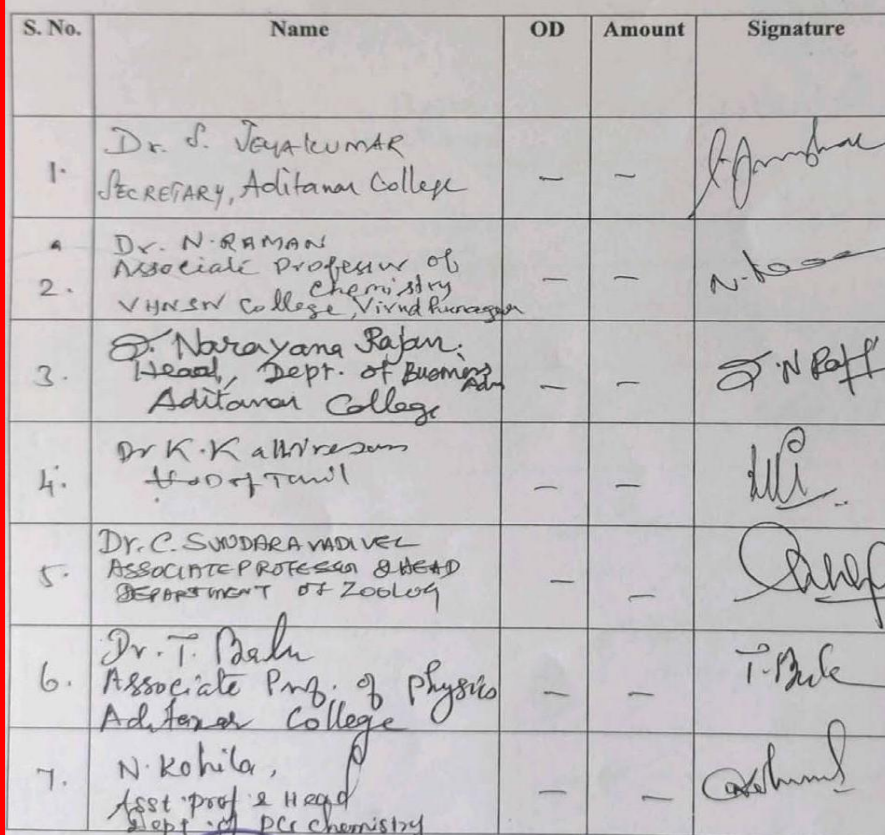 S. No. Name OD Amount Signature
1. Dr. S. JEYAKUMAR
SECRETARY, Aditanar College — —
2. Dr. N. RAMAN
Associate Professor of
Chemistry — —
VHNSN College, Virudhunagar
3. S. Narayana Rajan.
Head, Dept. of Business Adm — — S. N Raj
Aditanar College
4. Dr K. Kathiresan
HOD of Tamil — —
5. Dr. C. SUNDARAVADIVEL
ASSOCIATE PROFESSOR & HEAD
DEPARTMENT OF ZOOLOGY — —
6. Dr. T. Balu T. Balu
Associate Prof. of Physics — —
Aditanar College
7. N. Kohila,
Asst prof & Head — —
Dept. of PG Chemistry